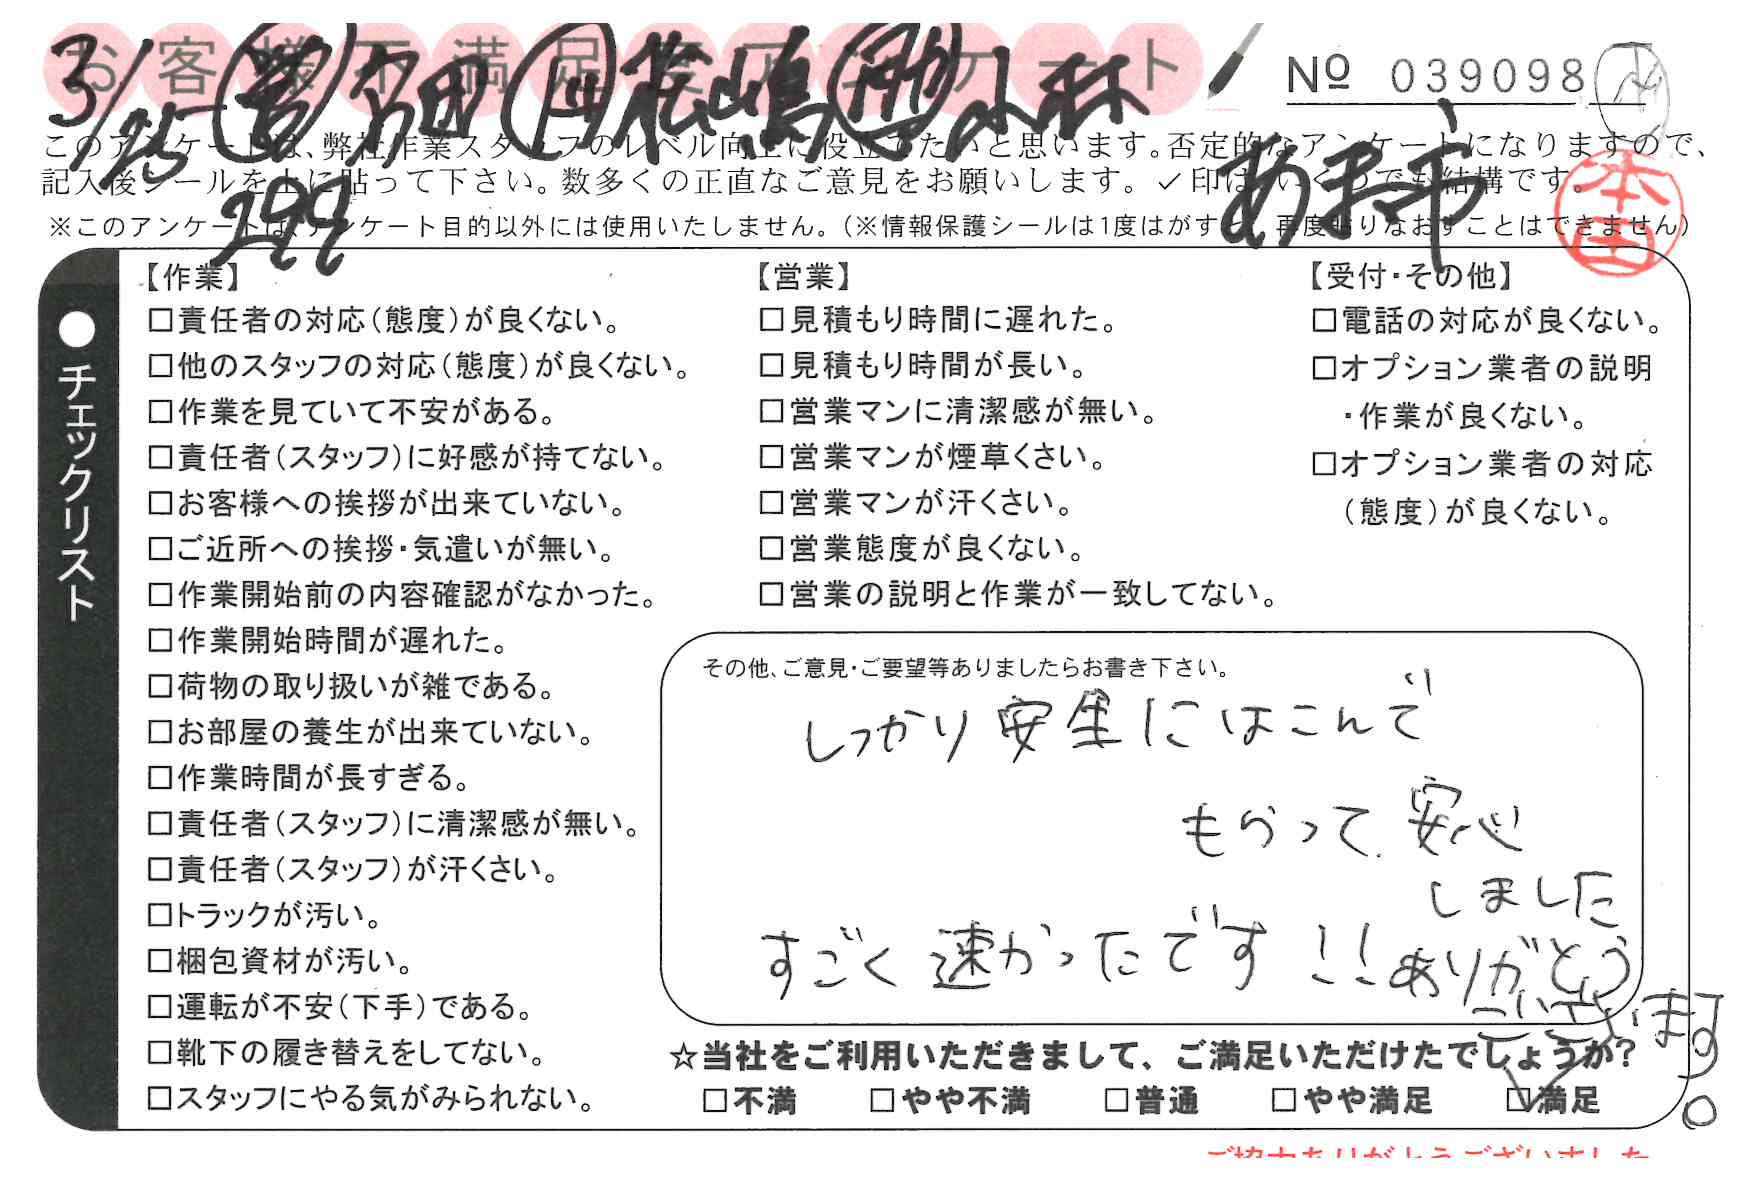 お客様不満足度アンケート
№ 039098
3/25 営 多田 作 松嶋 助 小林
このアンケートは、弊社作業スタッフのレベル向上に役立てたいと思います。否定的なアンケートになりますので、
記入後シールを上に貼って下さい。数多くの正直なご意見をお願いします。✓印はいくつでも結構です。
※このアンケートは、アンケート目的以外には使用いたしません。(※情報保護シールは1度はがすと、再度貼りなおすことはできません)
299
あま市
本田
●チェックリスト
【作業】
□責任者の対応(態度)が良くない。
□他のスタッフの対応(態度)が良くない。
□作業を見ていて不安がある。
□責任者(スタッフ)に好感が持てない。
□お客様への挨拶が出来ていない。
□ご近所への挨拶・気遣いが無い。
□作業開始前の内容確認がなかった。
□作業開始時間が遅れた。
□荷物の取り扱いが雑である。
□お部屋の養生が出来ていない。
□作業時間が長すぎる。
□責任者(スタッフ)に清潔感が無い。
□責任者(スタッフ)が汗くさい。
□トラックが汚い。
□梱包資材が汚い。
□運転が不安(下手)である。
□靴下の履き替えをしてない。
□スタッフにやる気がみられない。
【営業】
□見積もり時間に遅れた。
□見積もり時間が長い。
□営業マンに清潔感が無い。
□営業マンが煙草くさい。
□営業マンが汗くさい。
□営業態度が良くない。
□営業の説明と作業が一致してない。
【受付・その他】
□電話の対応が良くない。
□オプション業者の説明
・作業が良くない。
□オプション業者の対応
(態度)が良くない。
その他、ご意見・ご要望等ありましたらお書き下さい。
しっかり安全にはこんで
もらって安心
しました
すごく速かったです!!ありがとう
ございます。
☆当社をご利用いただきまして、ご満足いただけたでしょうか?
□不満 □やや不満 □普通 □やや満足 ☑満足
ご協力ありがとうございました